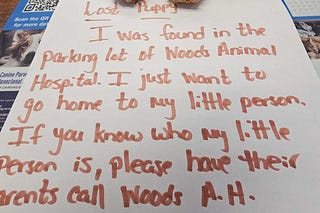 Scan the QR
for more de
Canine Parv
Monoclonal
Lost Puppy
I was found in the
parking lot of Woods Animal
Hospital. I just want to
go home to my little person.
If you know who my little
Person is, please have their
arents call Woods A.H.